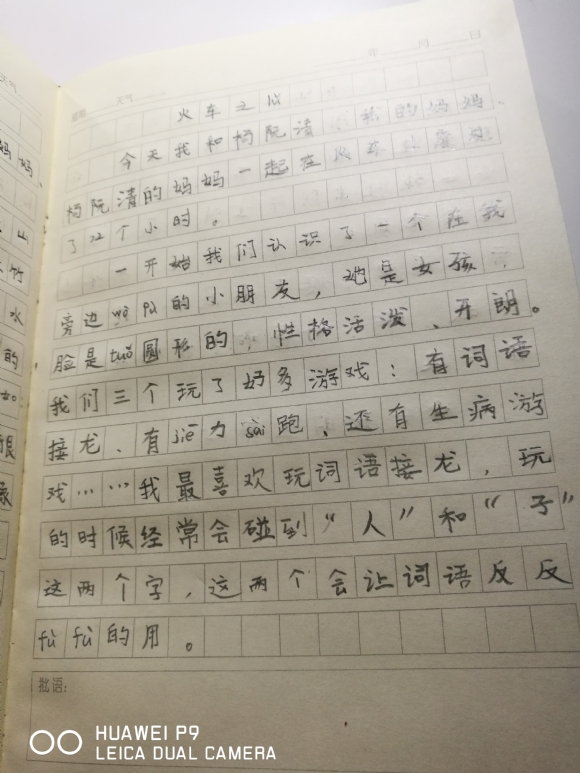 年 月 日
天气
火车之旅
今天我和杨阮清 我的妈妈、
杨阮清的妈妈一起在火车
了22个小时。
一开始我们认识了一个在我
旁边wò pù的小朋友，她是女孩，
脸是tuǒ圆形的，性格活泼、开朗。
我们三个玩了好多游戏：有词语
接龙、有jiē力sài跑、还有生病游
戏……我最喜欢玩词语接龙，玩
的时候经常会碰到“人”和“子”
这两个字，这两个会让词语反反
fù fù的用。
批语:
HUAWEI P9
LEICA DUAL CAMERA